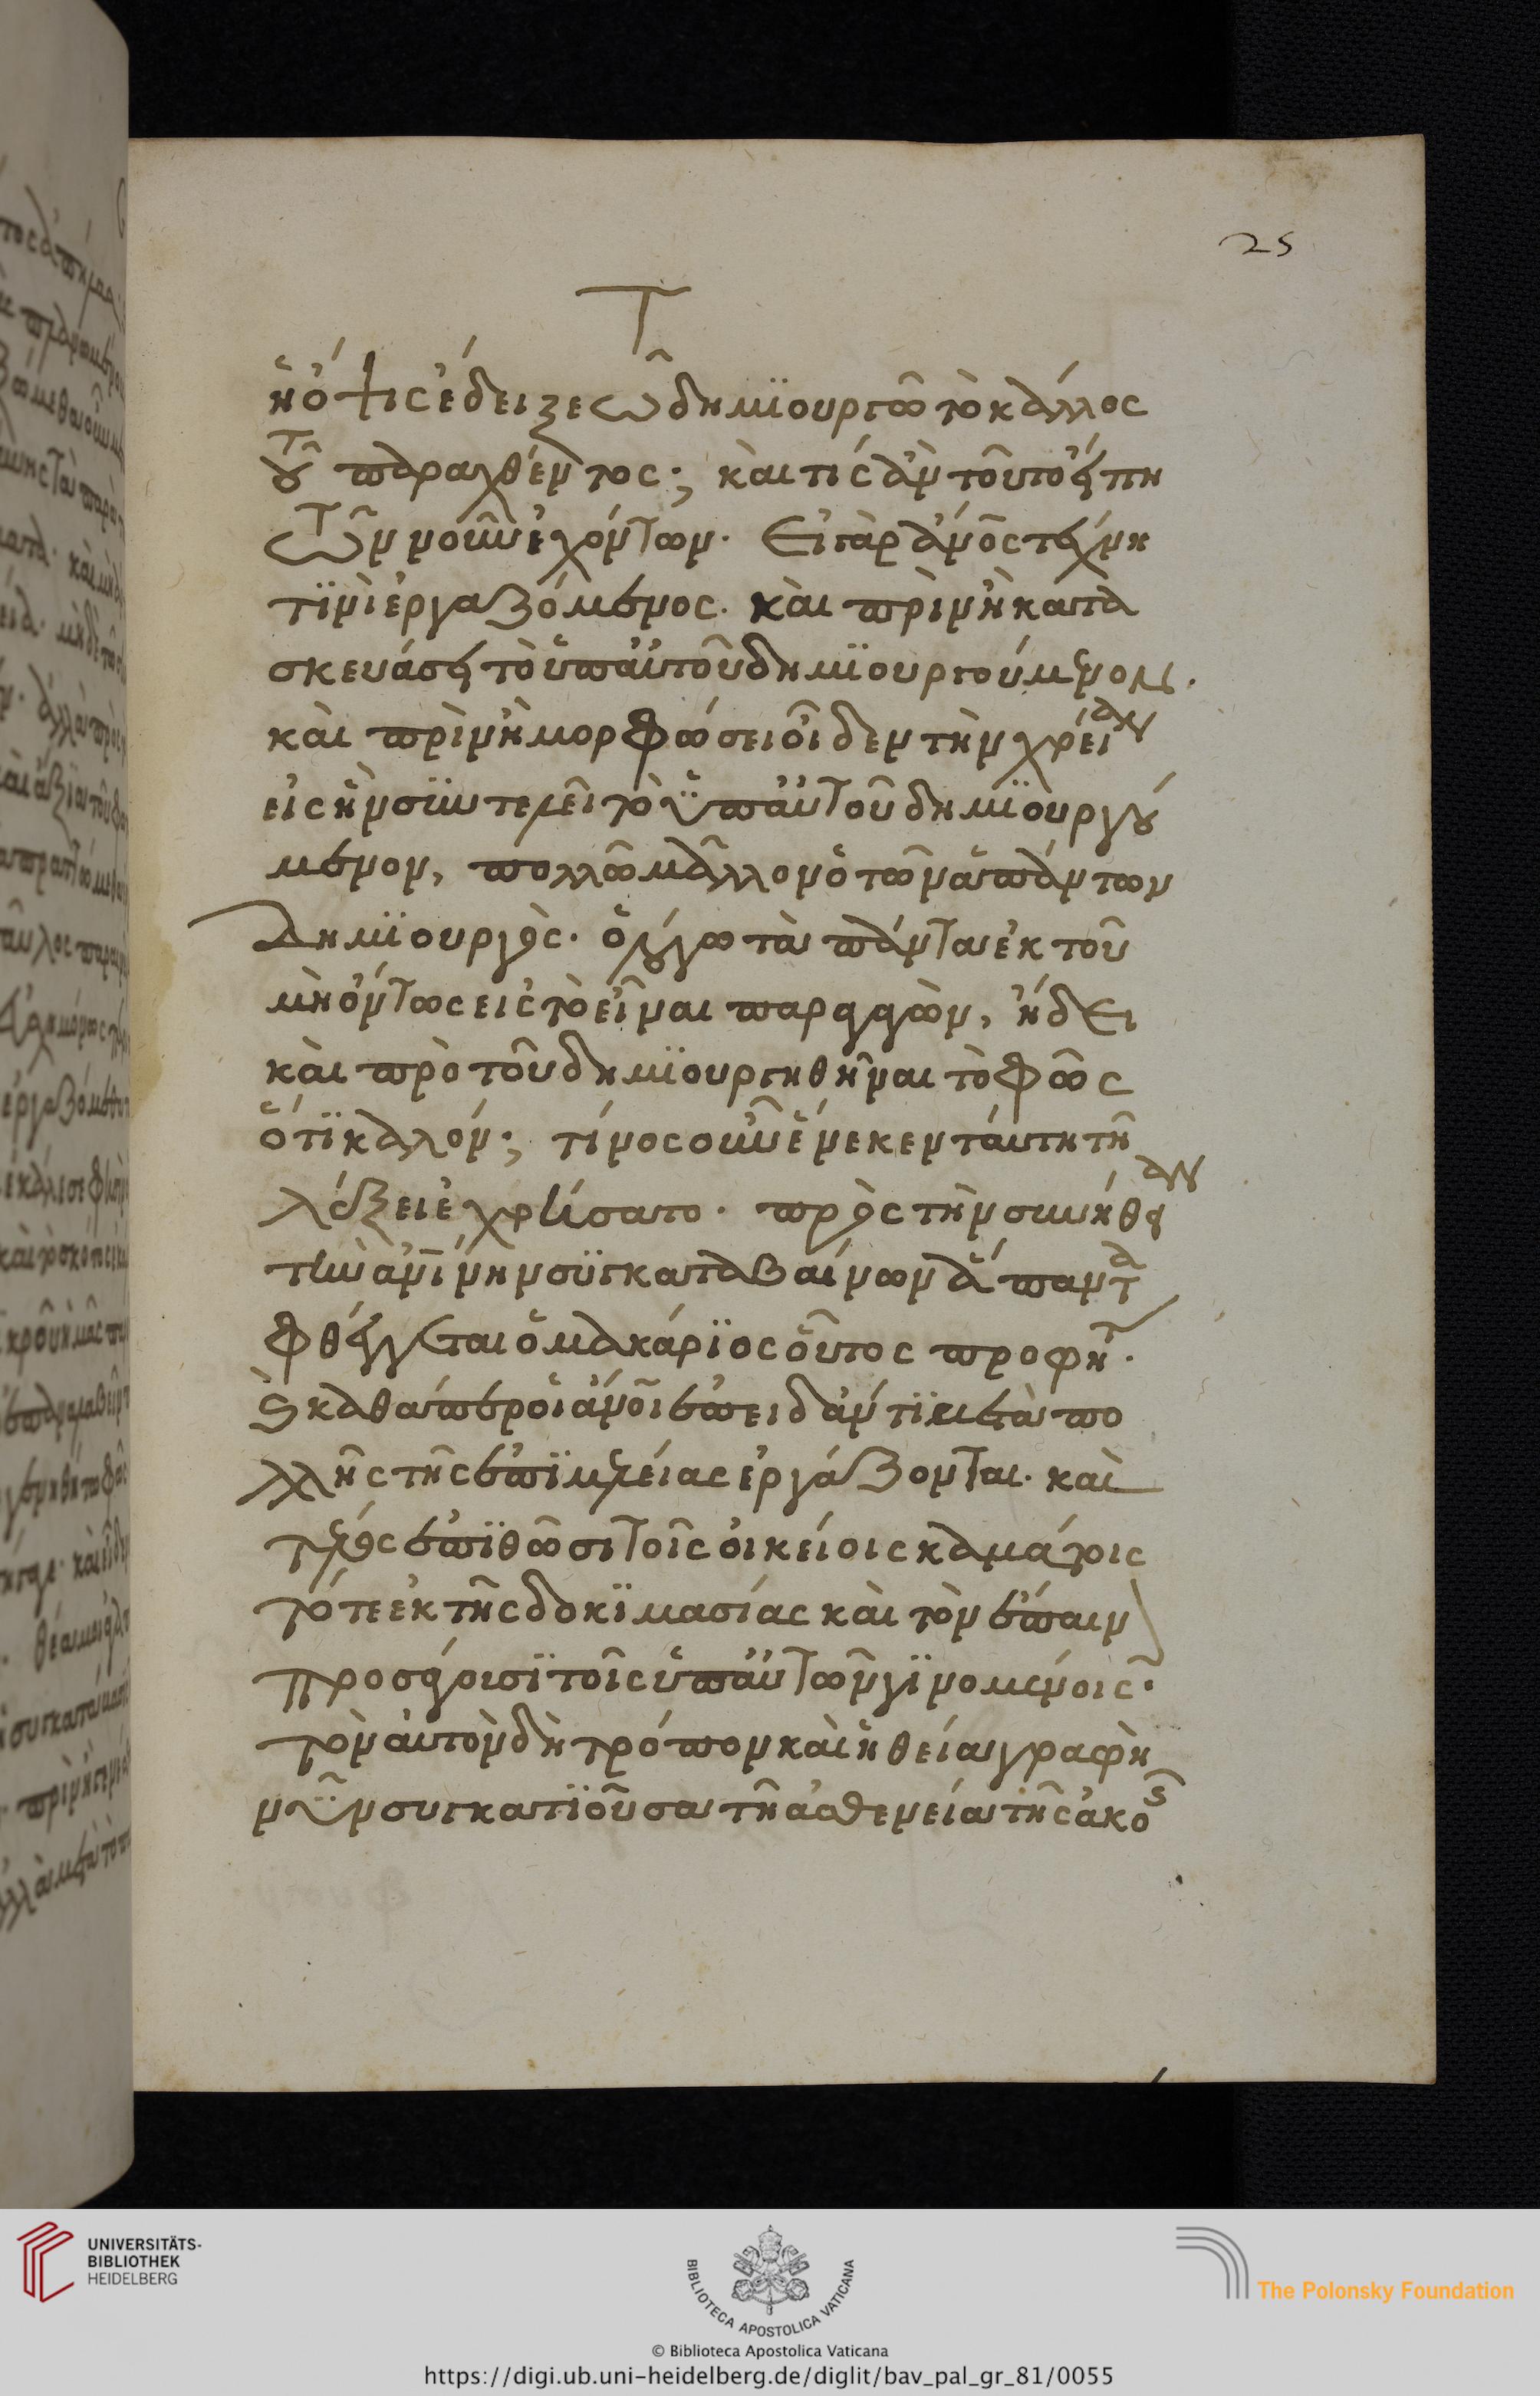 25
ἡ ὄψις ἔδειξε τῶ δημϊουργῶ τὸ κάλλος
τοῦ παραχθέντος; καὶ τίς ἂν τοῦτο εἴπη
τῶν νοῦν ἐχόντων. Εἰ γὰρ ἄνος τέχνη
τϊνὶ ἐργαζόμενος. καὶ πρὶν ἢ κατα
σκευάσει τὸ ὑπ' αὐτοῦ δημϊουργούμενον.
καὶ πρὶν ἢ μορφώσει οἶδεν τὴν χρείαν
εἰς ἣν συντελεῖ τὸ ὑπ' αὐτοῦ δημϊουργού
μενον, πολλῶ μᾶλλον ὁ τῶν ἁπάντων
Δημϊουργὸς. ὁ λόγω τὰ πάντα ἐκ τοῦ
μὴ ὄντως εἰς τὸ εἶναι παραγαγὼν, ἤδει
καὶ πρὸ τοῦ δημϊουργηθῆναι τὸ φῶς
ὅτϊ καλόν; τίνος οὖν ἕνεκεν ταύτη τῆ
λέξει ἐχρήσατο. πρὸς τὴν συνήθειαν
τὴν ἀνίνην συγκαταβαίνων ἅπαντα
φθέγγεται ὁ μακάρϊος οὗτος προφήτ.
Ϛ καθάπερ οἱ ἄνοι ἐπειδάν τϊ μετὰ πο
λλῆς τῆς ἐπϊμελείας ἐργάζονται. καὶ
τέλος ἐπϊθῶσι τοῖς οἰκείοις καμάτοις
τότε ἐκ τῆς δοκϊμασίας καὶ τὸν ἔπαιν
προσάγουσϊ τοῖς ὑπ' αὐτῶν γϊνομένοις.
τὸν αὐτὸν δὴ τρόπον καὶ ἡ θεία γραφὴ
νῦν συγκατϊοῦσα τῆ ἀσθενεία τῆς ἀκοῆς
UNIVERSITÄTS-
BIBLIOTHEK
HEIDELBERG
BIBLIOTECA APOSTOLICA VATICANA
The Polonsky Foundation
© Biblioteca Apostolica Vaticana
https://digi.ub.uni-heidelberg.de/diglit/bav_pal_gr_81/0055